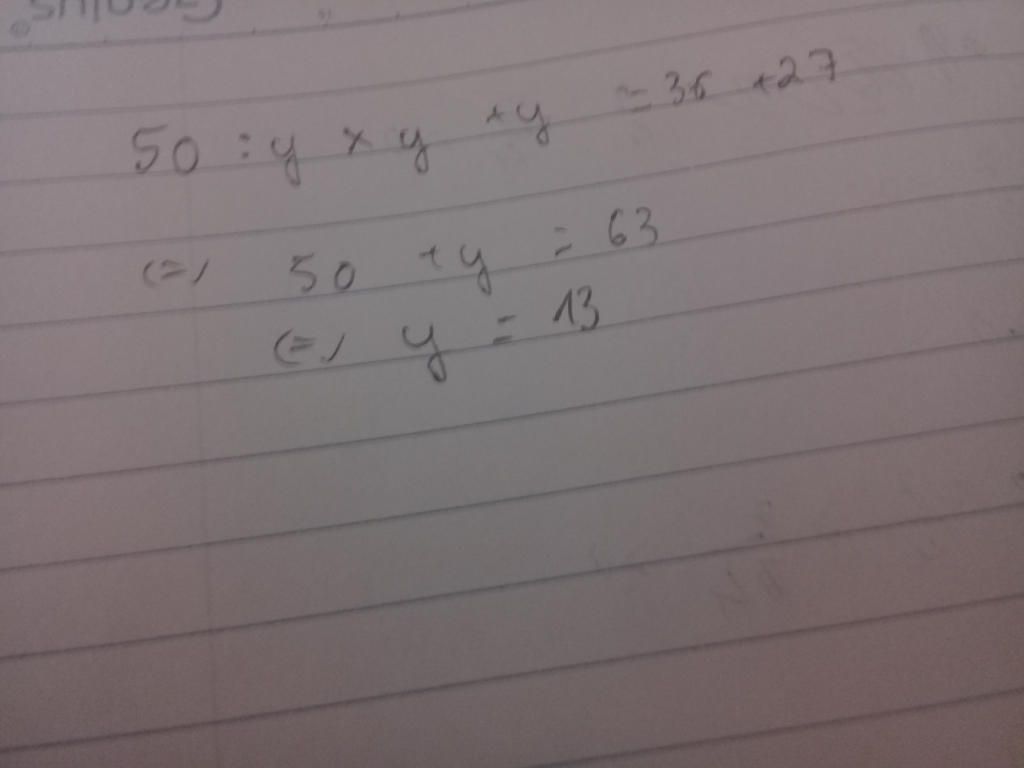 50 : y x y + y = 36 + 27
<=> 50 + y = 63
<=> y = 13